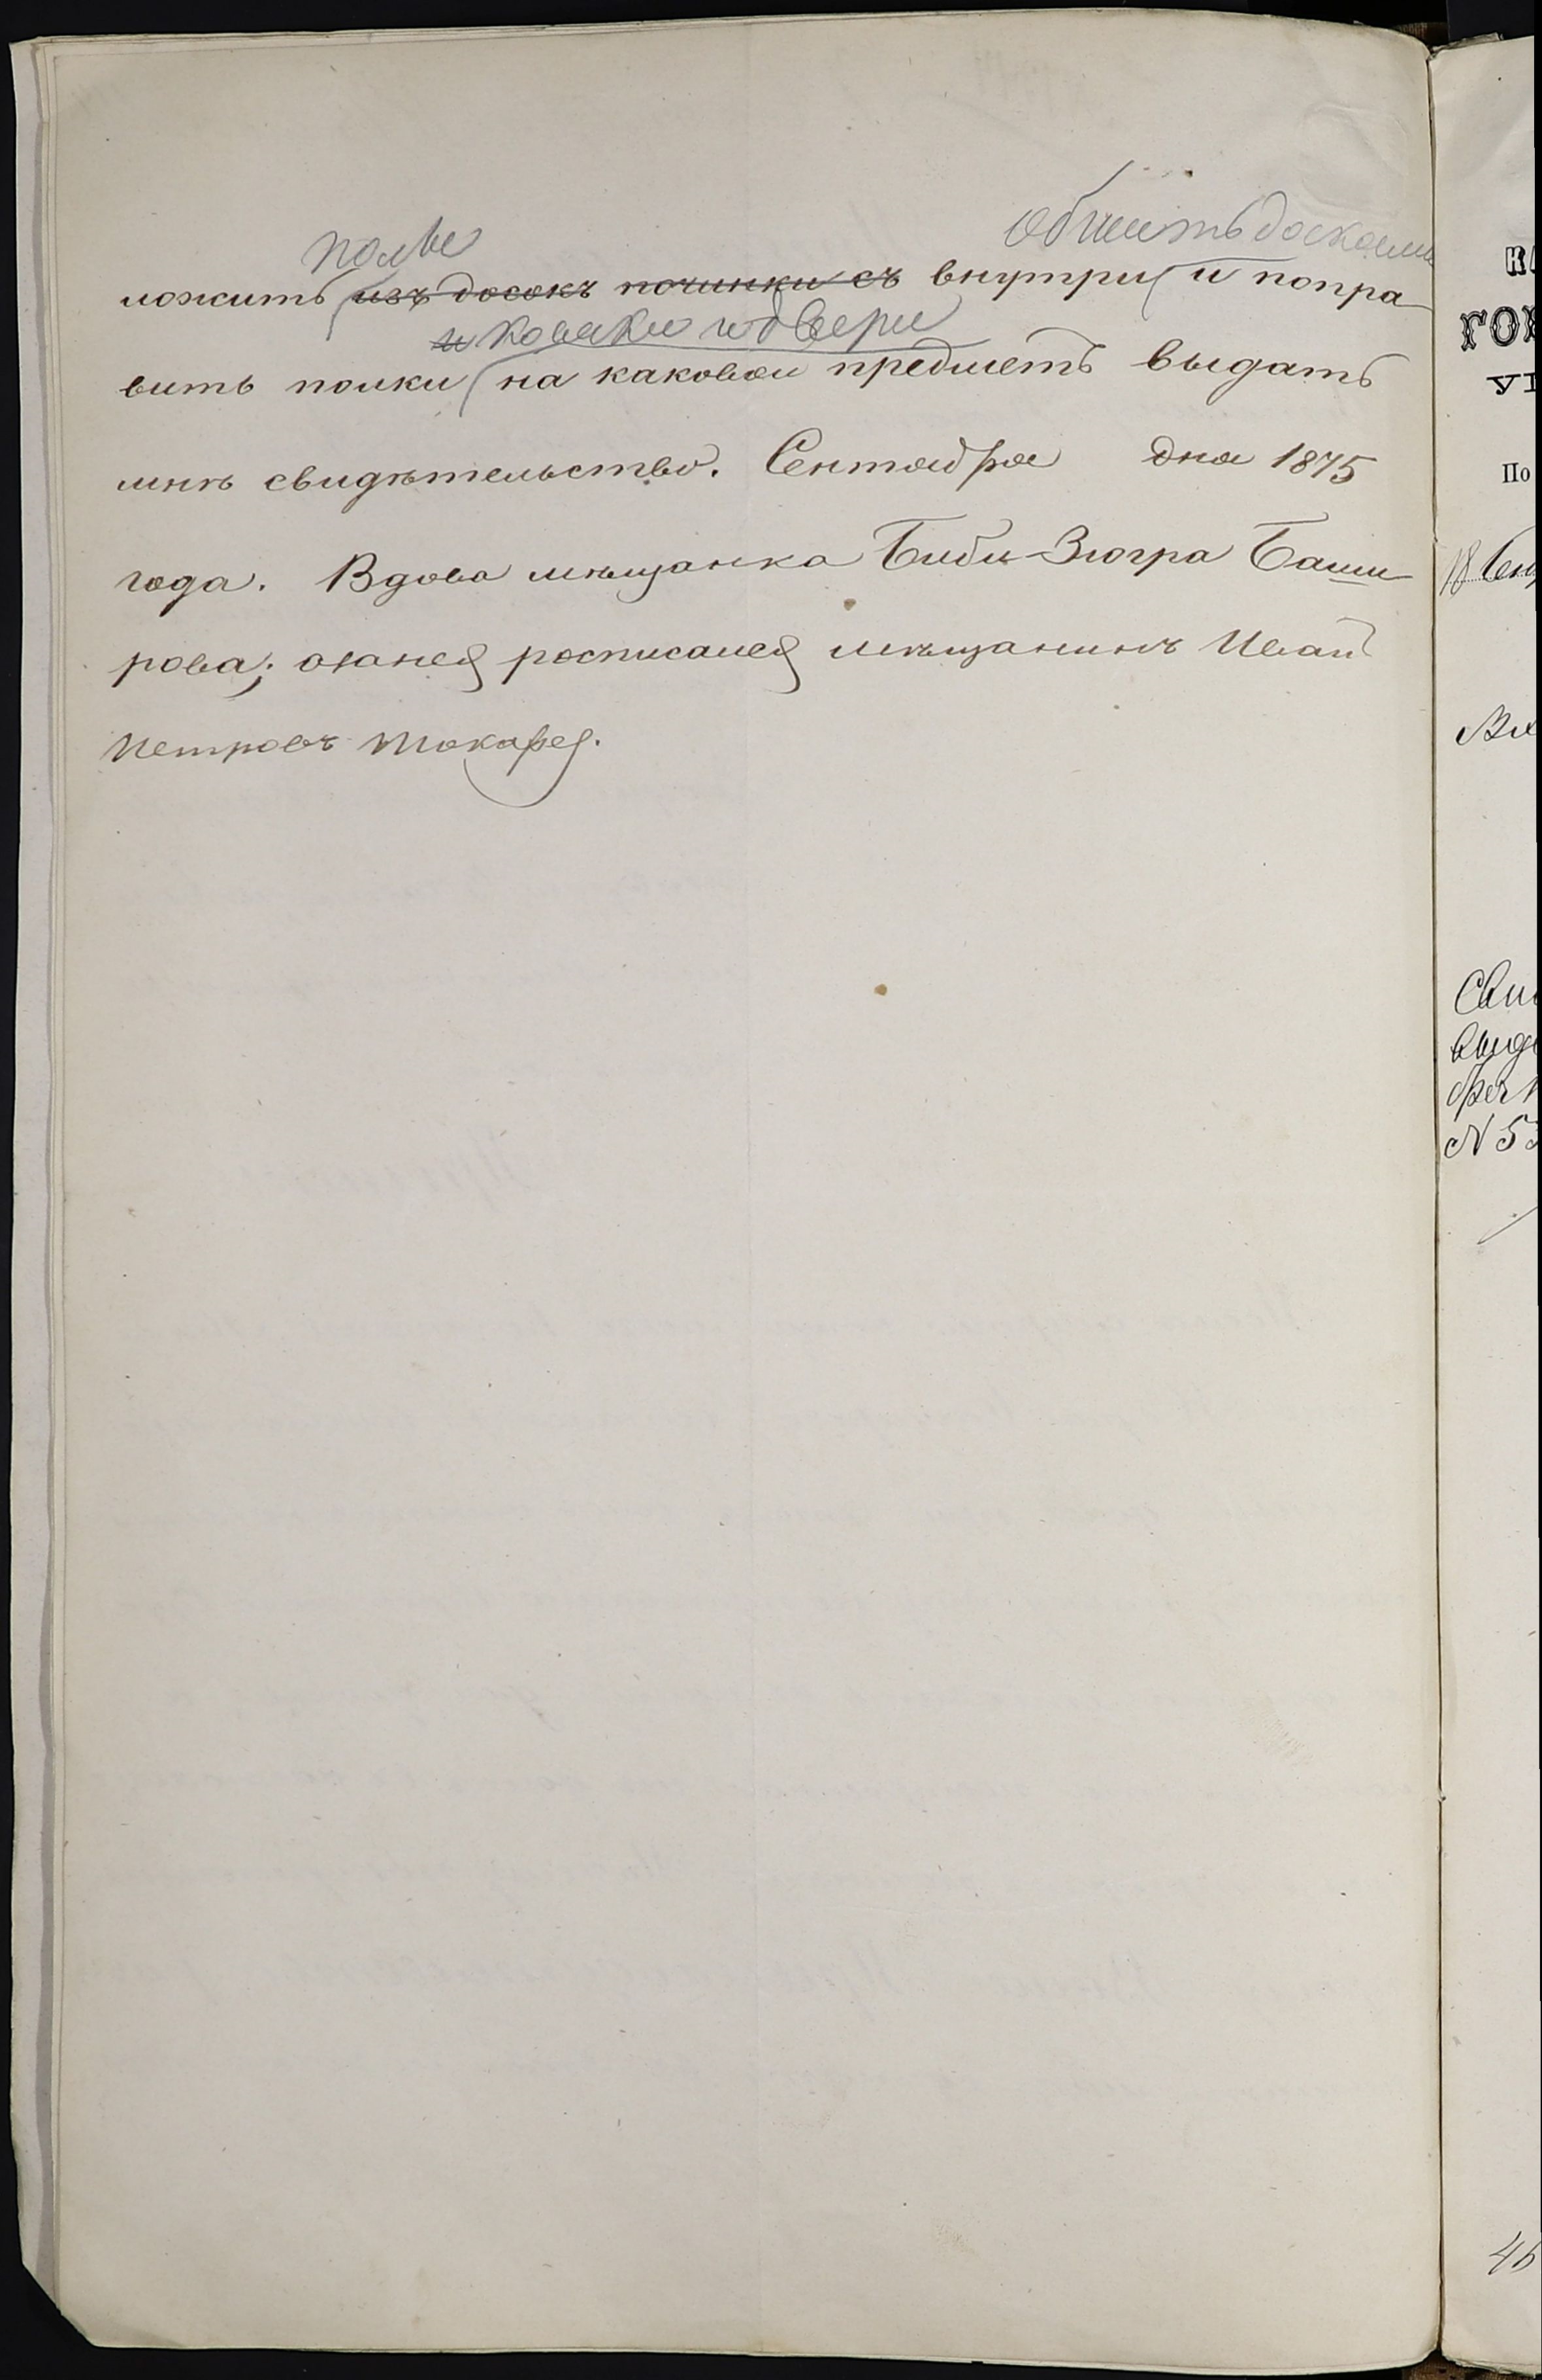 полы
обшить досками
ложить изъ досокъ починки съ внутри и попра
и косяки и двери
вить полки на каковой предметъ выдать
мнѣ свидѣтельство. Сентября дня 1875
года. Вдова мѣщанка Биби-Зюгра Баши-
рова; озанея росписался мѣщанинъ Иванъ
Петровъ Токарев.
По
18 Сен
Сви
виде
N 53
46